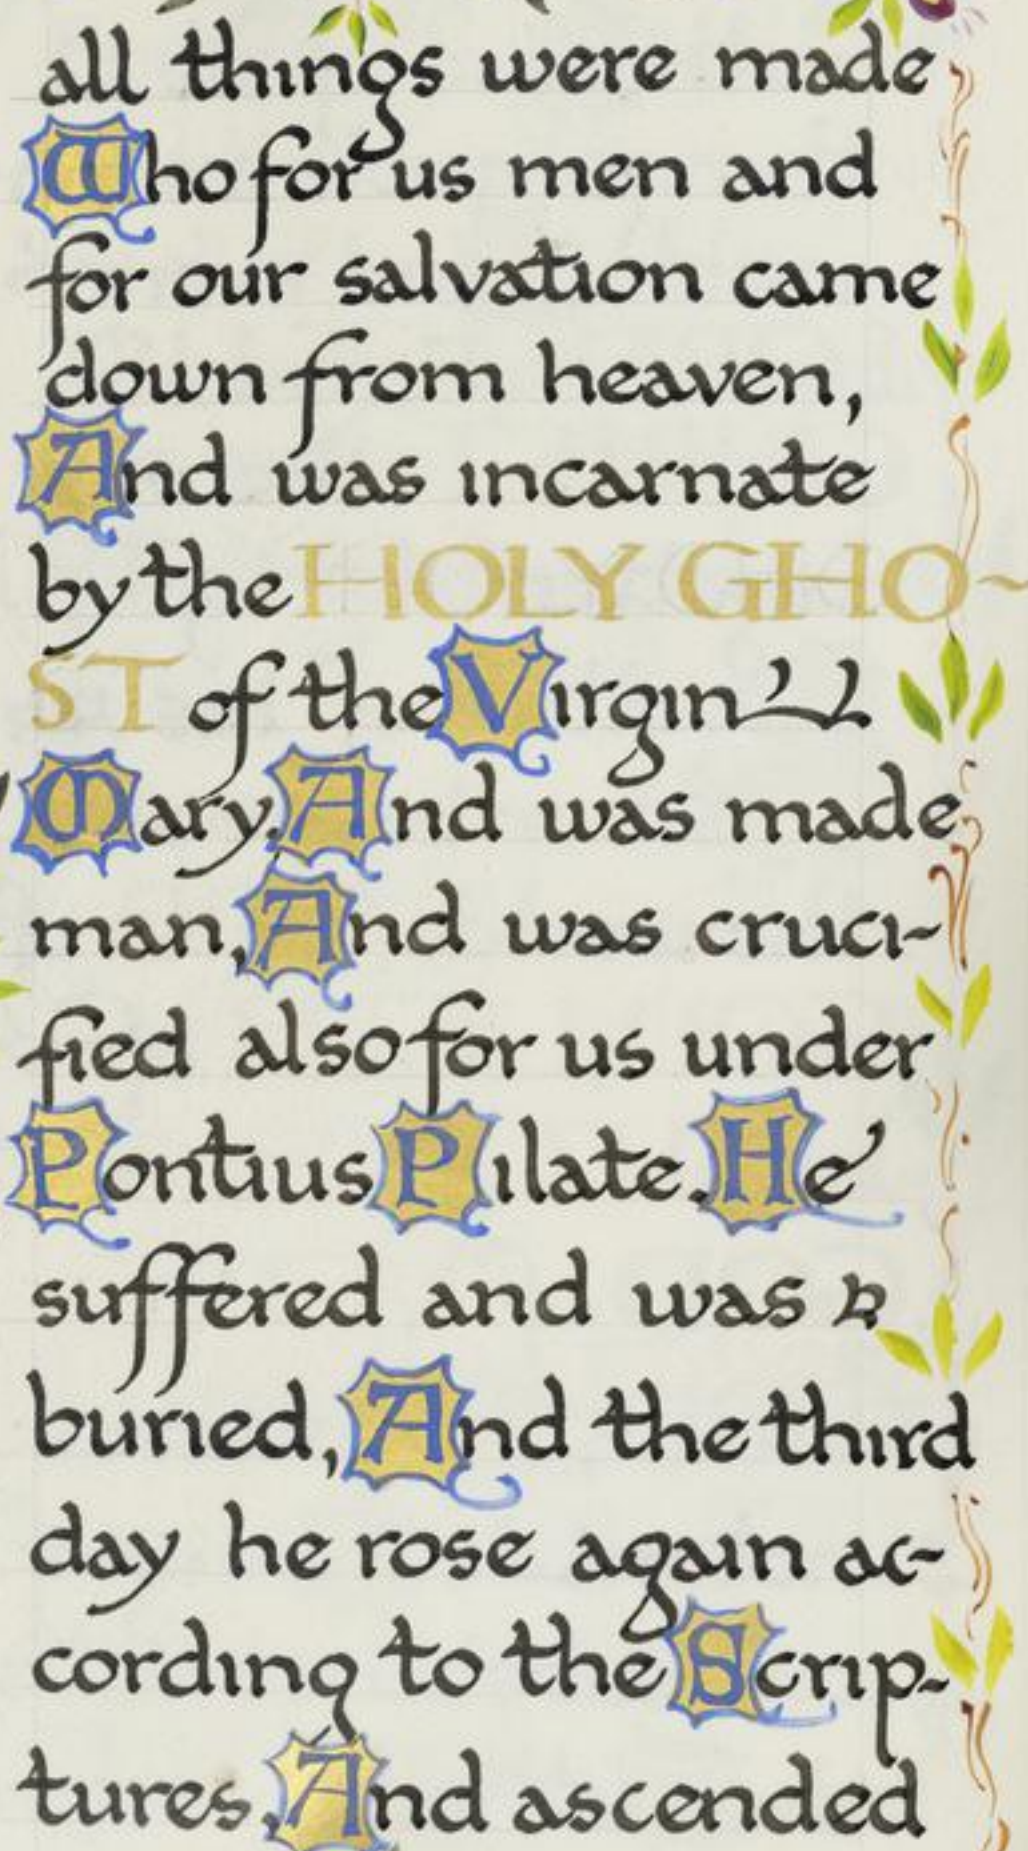 all things were made
Who for us men and
for our salvation came
down from heaven,
And was incarnate
by the HOLY GHO-
ST of the Virgin
Mary, And was made
man, And was cruci-
fied also for us under
Pontius Pilate. He
suffered and was
buried, And the third
day he rose again ac-
cording to the Scrip-
tures, And ascended